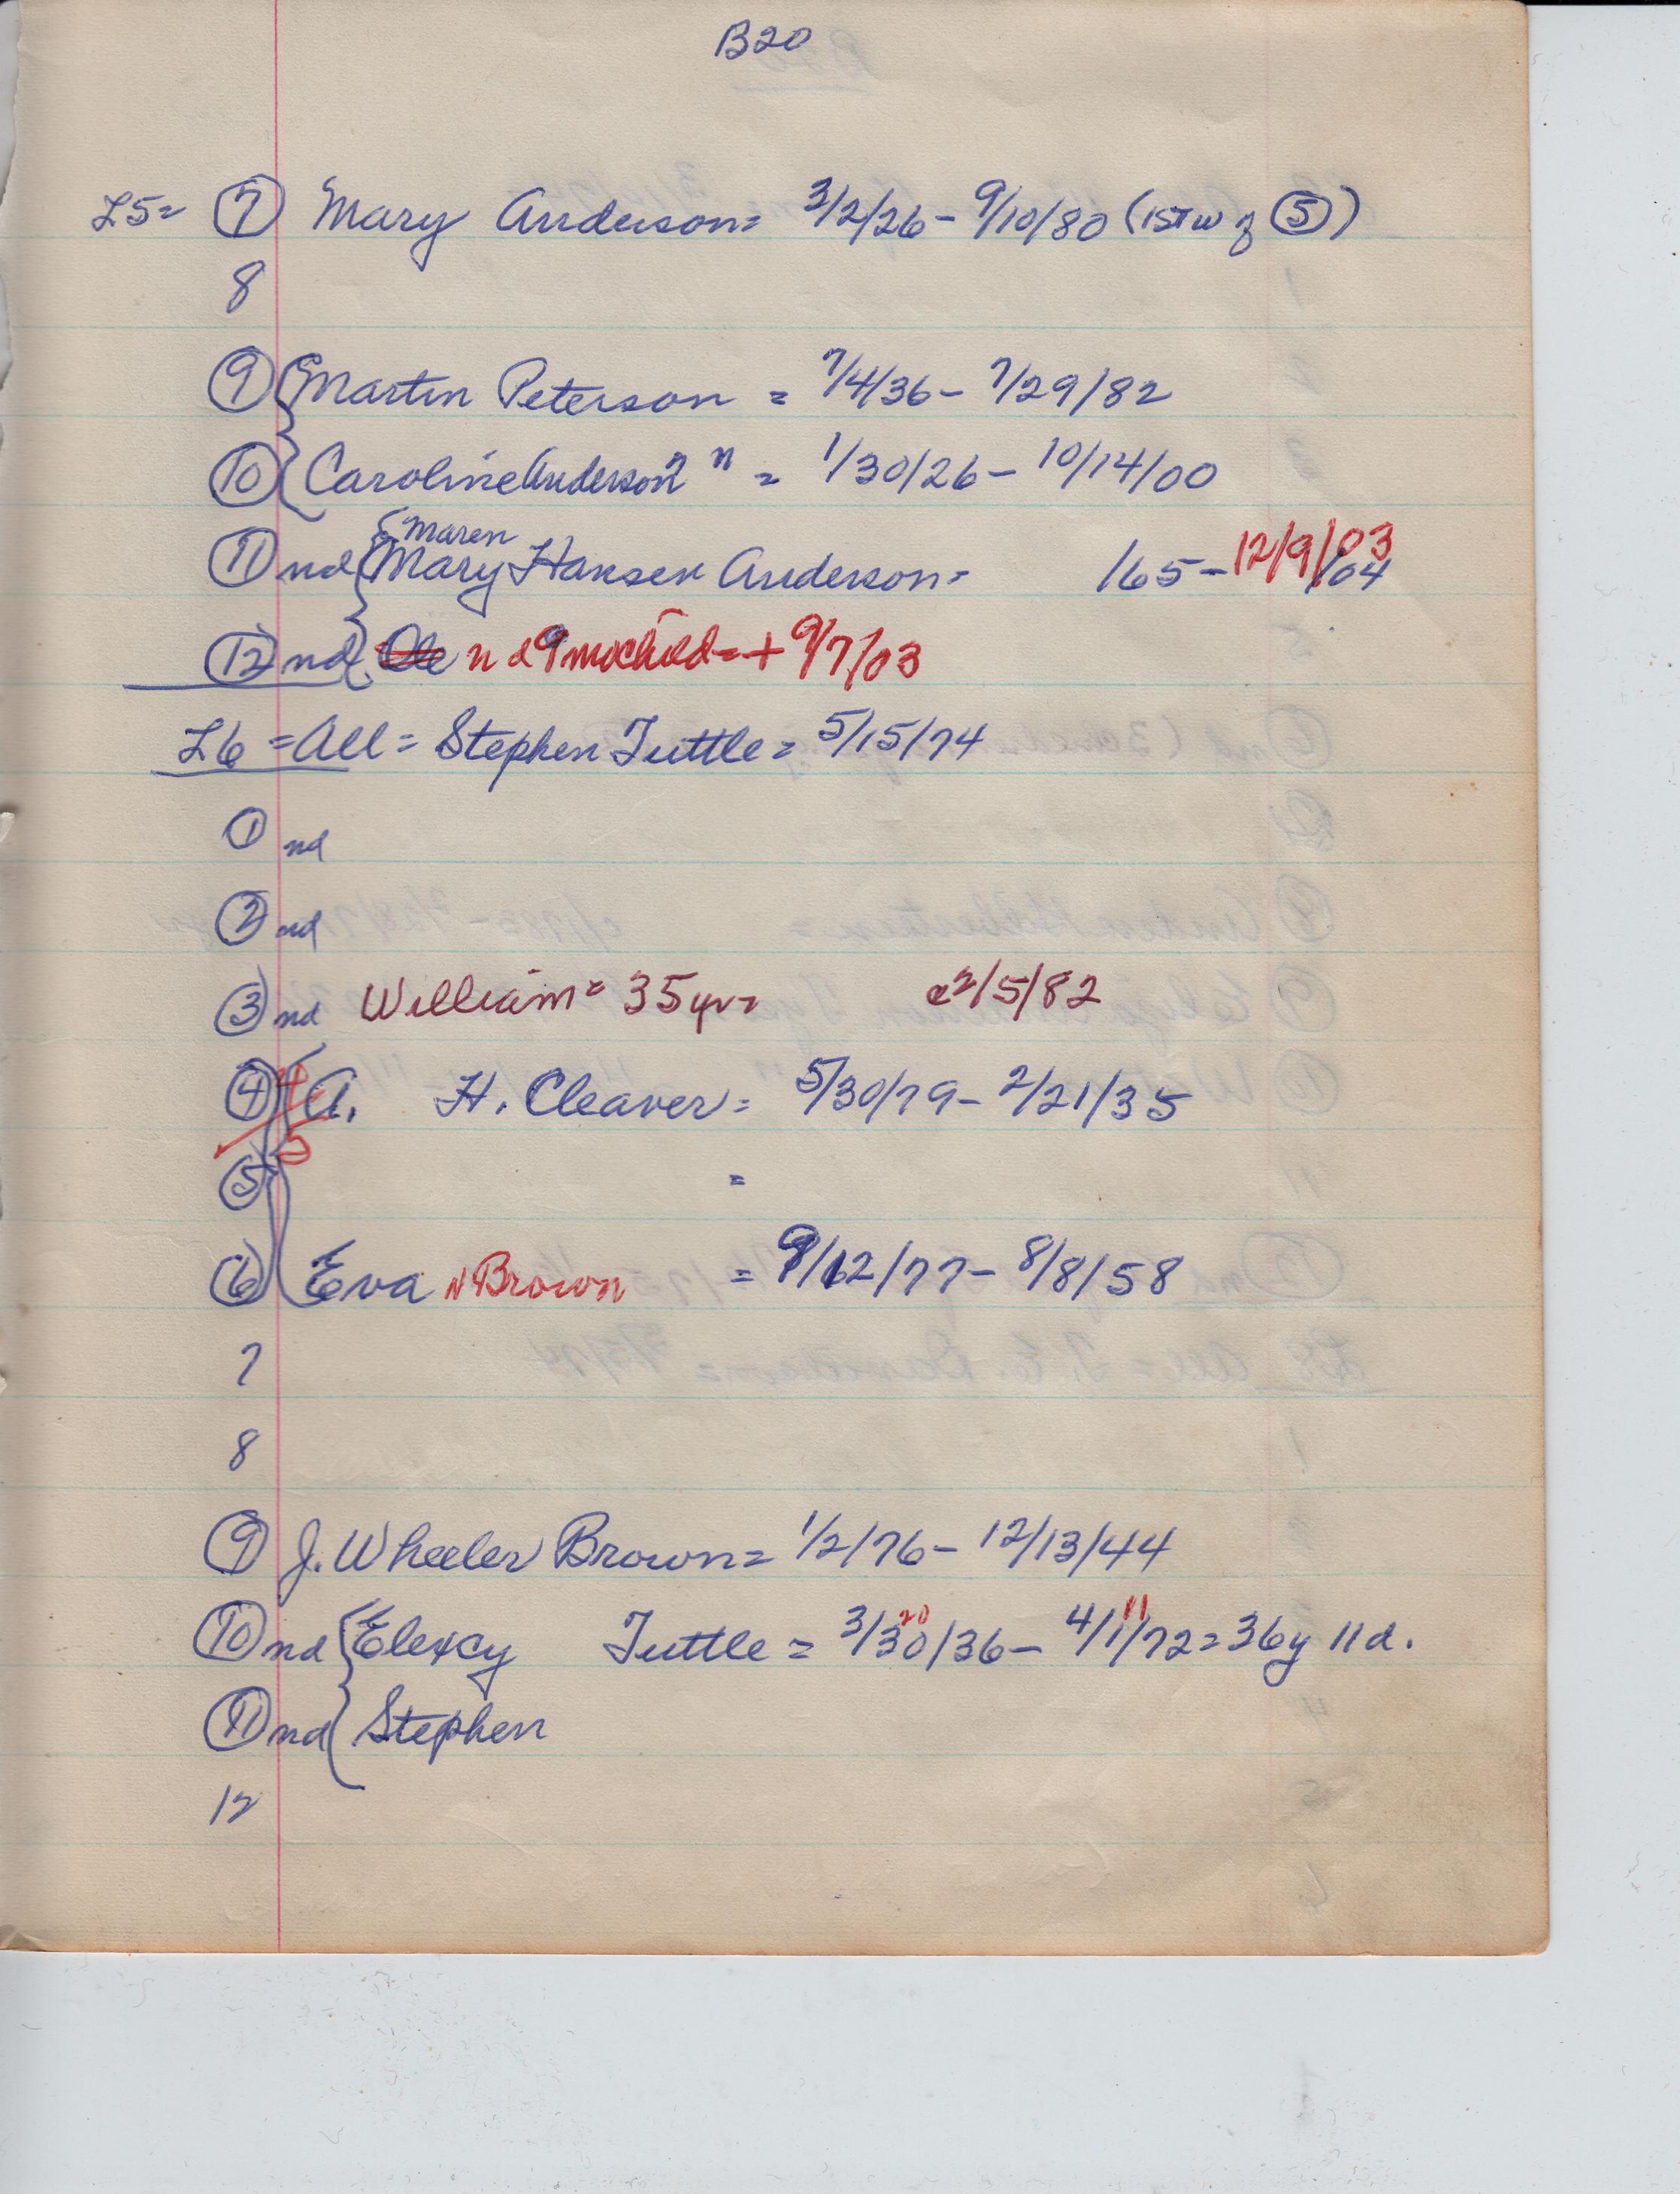 B20
L5= 7 Mary Anderson= 3/2/26 - 9/10/80 (1st w of 5)
8
9 Martin Peterson = 7/4/36 - 7/29/82
10 Caroline Anderson " = 1/30/26 - 10/14/00
Maren
11 nd Mary Hansen Anderson= /65 - 12/9/03 /04
12 nd Ole nd 9 mo child = + 9/7/03
L6 = All = Stephen Tuttle = 5/15/74
1 nd
2 nd
3 nd William = 35yr= 2/5/82
4 A. H. Cleaver = 5/30/79 - 2/21/35
5 =
6 Eva N Brown = 9/12/77 - 8/8/58
7
8
9 J. Wheeler Brown = 1/2/76 - 12/13/44
20 11
10 nd Elexcy Tuttle = 3/30/36 - 4/1/72 = 36y 11d.
11 nd Stephen
12